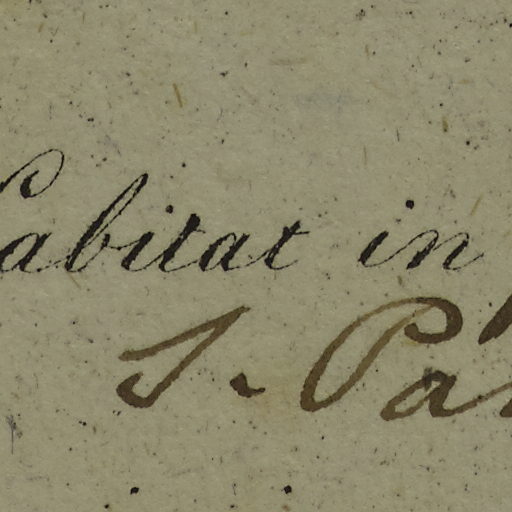 Habitat in
S. Pa